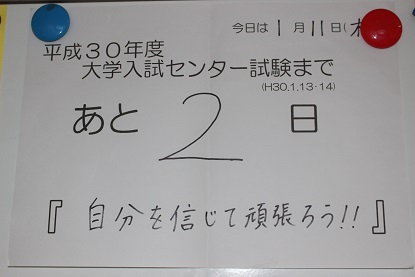 今日は1月11日(木
平成30年度
大学入試センター試験まで
(H30,1,13・14)
あと2日
『自分を信じて頑張ろう!!』